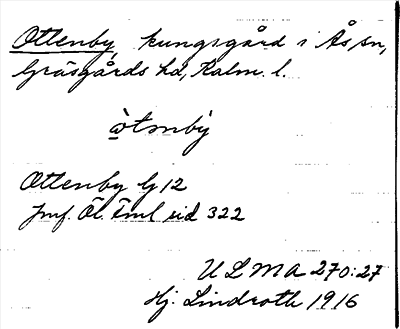 Ottenby, kungsgård i Ås sn,
Gräsgårds hd, Kalm. l.
òtmbý
Ottenby G 12
Jmf. Öl. Fml sid 322
ULMA 270:27
Hj. Lindroth 1916